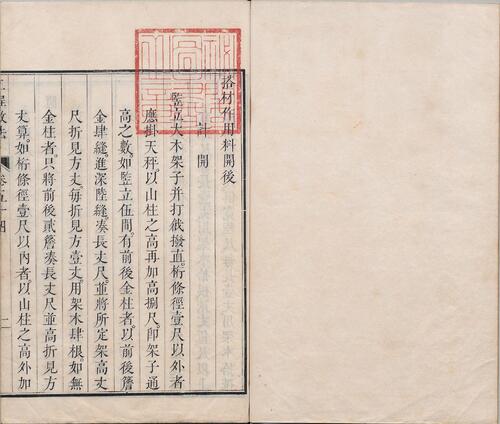 搭材作用料開後
計開
豎立大木架子并打戧撥直桁條徑壹尺以外者
應掛天秤以山柱之高再加高捌尺卽架子通
高之數如豎立伍間有前後金柱者以前後簷
金肆縫進深陸縫湊長丈尺並將所定架高丈
尺折見方丈每折見方壹丈用架木肆根如無
金柱者只將前後貳簷湊長丈尺並高折見方
丈算如桁條徑壹尺以內者以山柱之高外加
工程做法 卷五十四 二